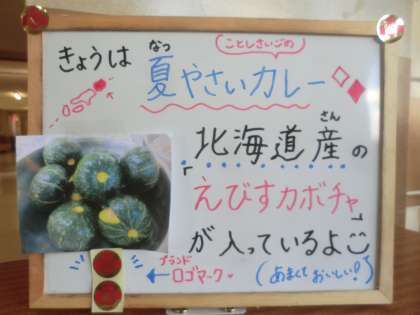 ことしさいごの
きょうは
なつ
夏やさいカレー
さん
「北海道産の
えびすカボチャ」
が入っているよ
ブランド
←ロゴマーク
(あまくておいしい!)